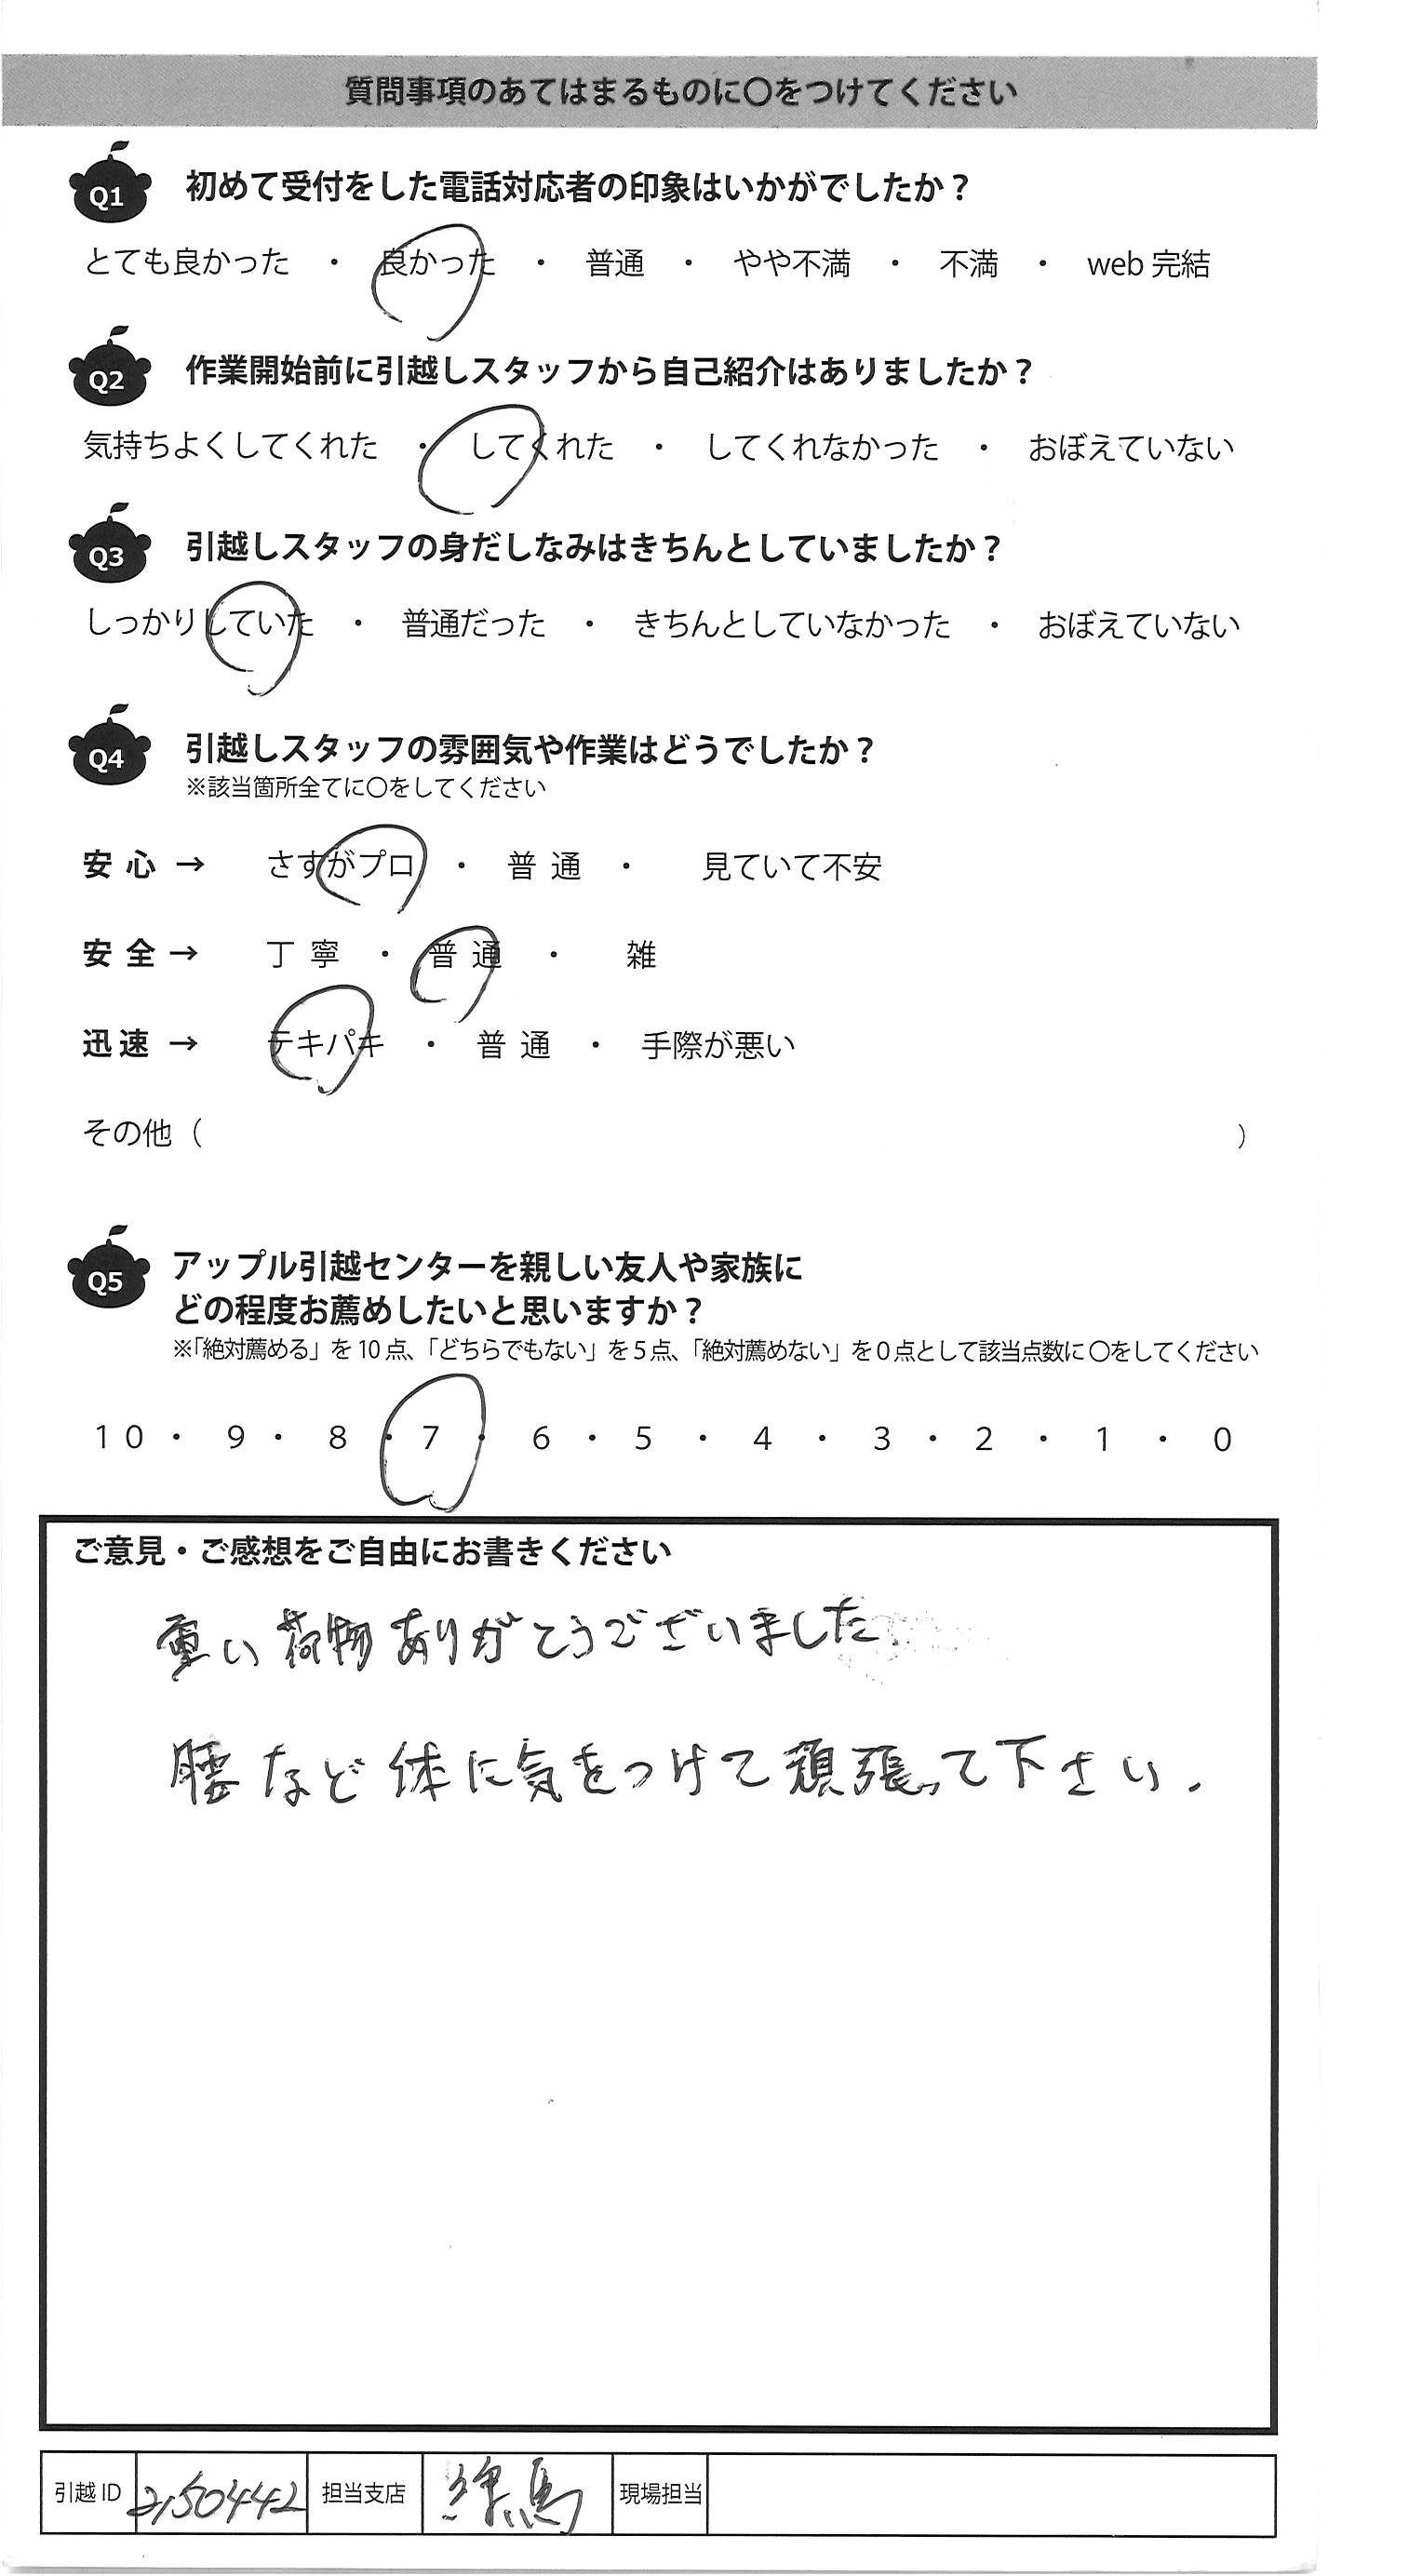 質問事項のあてはまるものに〇をつけてください
Q1 初めて受付をした電話対応者の印象はいかがでしたか？
とても良かった ・ 良かった ・ 普通 ・ やや不満 ・ 不満 ・ web 完結
Q2 作業開始前に引越しスタッフから自己紹介はありましたか？
気持ちよくしてくれた ・ してくれた ・ してくれなかった ・ おぼえていない
Q3 引越しスタッフの身だしなみはきちんとしていましたか？
しっかりしていた ・ 普通だった ・ きちんとしていなかった ・ おぼえていない
Q4 引越しスタッフの雰囲気や作業はどうでしたか？
※該当箇所全てに〇をしてください
安 心 → さすがプロ ・ 普 通 ・ 見ていて不安
安 全 → 丁 寧 ・ 普 通 ・ 雑
迅 速 → テキパキ ・ 普 通 ・ 手際が悪い
その他（ ）
Q5 アップル引越センターを親しい友人や家族に
どの程度お薦めしたいと思いますか？
※「絶対薦める」を 10 点、「どちらでもない」を 5 点、「絶対薦めない」を 0 点として該当点数に 〇をしてください
10 ・ 9 ・ 8 ・ 7 ・ 6 ・ 5 ・ 4 ・ 3 ・ 2 ・ 1 ・ 0
ご意見・ご感想をご自由にお書きください
重い荷物ありがとうございました.
腰など体に気をつけて頑張って下さい.
引越 ID 2150442 担当支店 練馬 現場担当